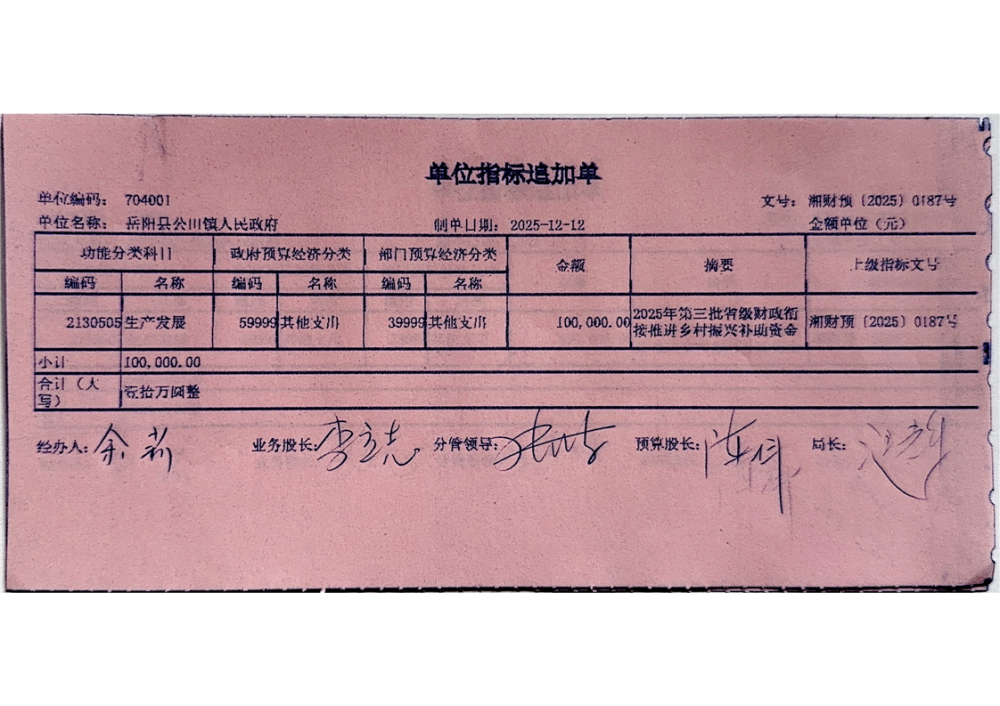 单位指标追加单
单位编码： 704001 文号： 湘财预〔2025〕0187号
单位名称： 岳阳县公田镇人民政府 制单日期： 2025-12-12 金额单位（元）
功能分类科目 政府预算经济分类 部门预算经济分类 金额 摘要 上级指标文号
编码 名称 编码 名称 编码 名称
2130505 生产发展 59999 其他支出 39999 其他支出 100,000.00 2025年第三批省级财政衔 湘财预〔2025〕0187号
接推进乡村振兴补助资金
小计 100,000.00
合计（大 壹拾万圆整
写）
经办人: 余莉 业务股长: 李立志 分管领导: 预算股长: 局长: